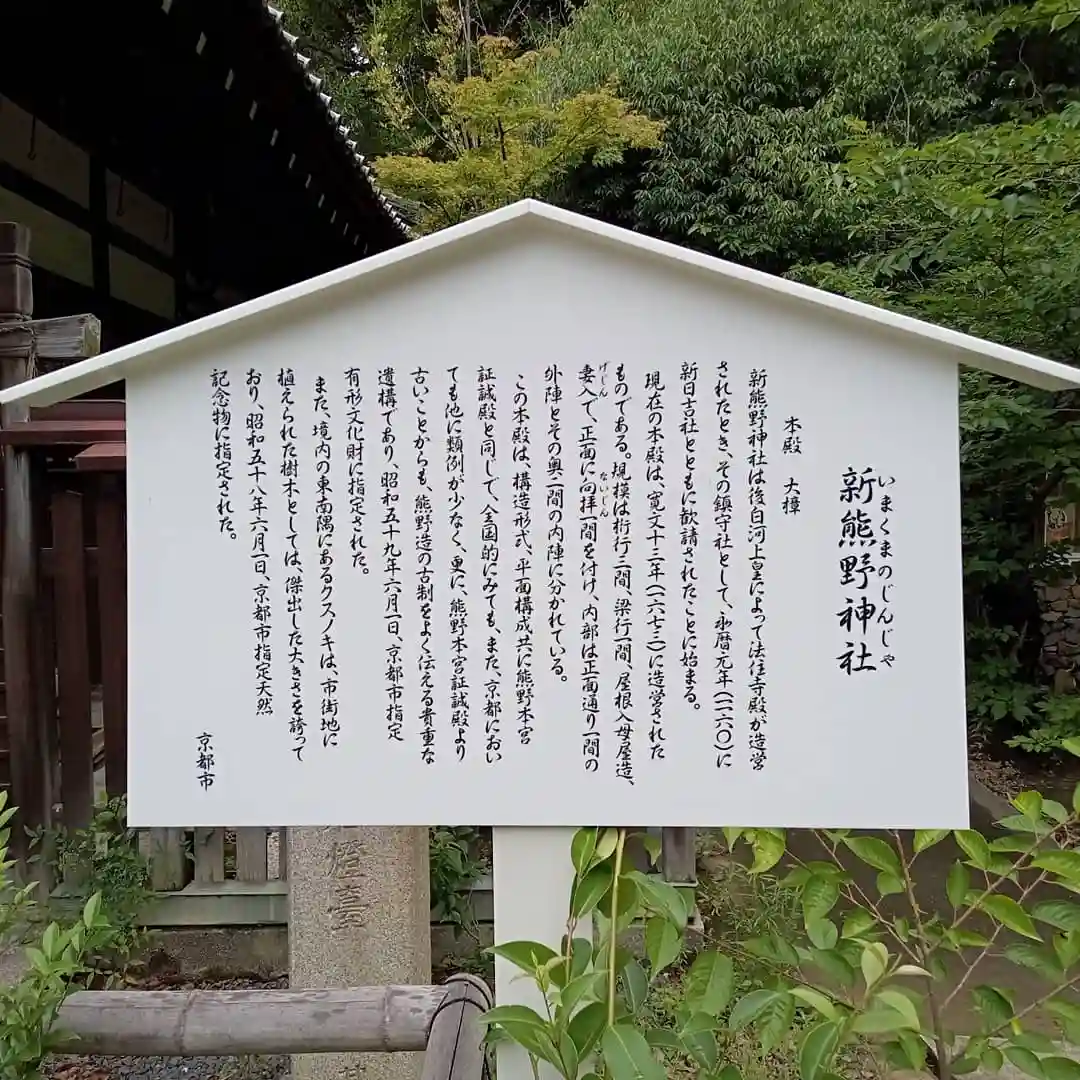 いまくまのじんじゃ
新熊野神社
本殿 大樟
新熊野神社は後白河上皇によって法住寺殿が造営
されたとき、その鎮守社として、永暦元年(一一六〇)に
新日吉社とともに歓請されたことに始まる。
現在の本殿は、寛文十三年(一六七三)に造営された
ものである。規模は桁行三間、梁行二間、屋根入母屋造、
妻入で、正面に向拝一間を付け、内部は正面通り一間の
げじん
外陣とその奥二間の内陣に分かれている。
ないじん
この本殿は、構造形式、平面構成共に熊野本宮
証誠殿と同じで、全国的にみても、また、京都におい
ても他に類例が少なく、更に、熊野本宮証誠殿より
古いことからも、熊野造の古制をよく伝える貴重な
遺構であり、昭和五十九年六月一日、京都市指定
有形文化財に指定された。
また、境内の東南隅にあるクスノキは、市街地に
植えられた樹木としては、傑出した大きさを誇って
おり、昭和五十八年六月一日、京都市指定天然
記念物に指定された。
京都市
燈臺